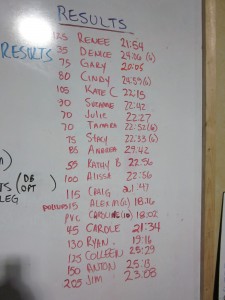 RESULTS
RESULTS
125 RENEE 21:54
35 DENICE 24:06 (G)
75 GARY 20:05
80 CINDY 24:59(G)
105 KATE C 22:15
90 SUZANNE 22:42
70 JULIE 22:27
70 TAMARA 22:52(G)
75 STACY 22:33(G)
85 ANDREA 29:42
55 KATHY B 22:56
100 ALISSA 22:56
115 CRAIG 21:47
15 ALEX M(G) 18:16
PVC 18:02
45 CAROLE 21:34
130 RYAN 19:16
125 COLLEEN 25:29
150 ANTON
205 JIM 23:08
(DB
OPT
LEG